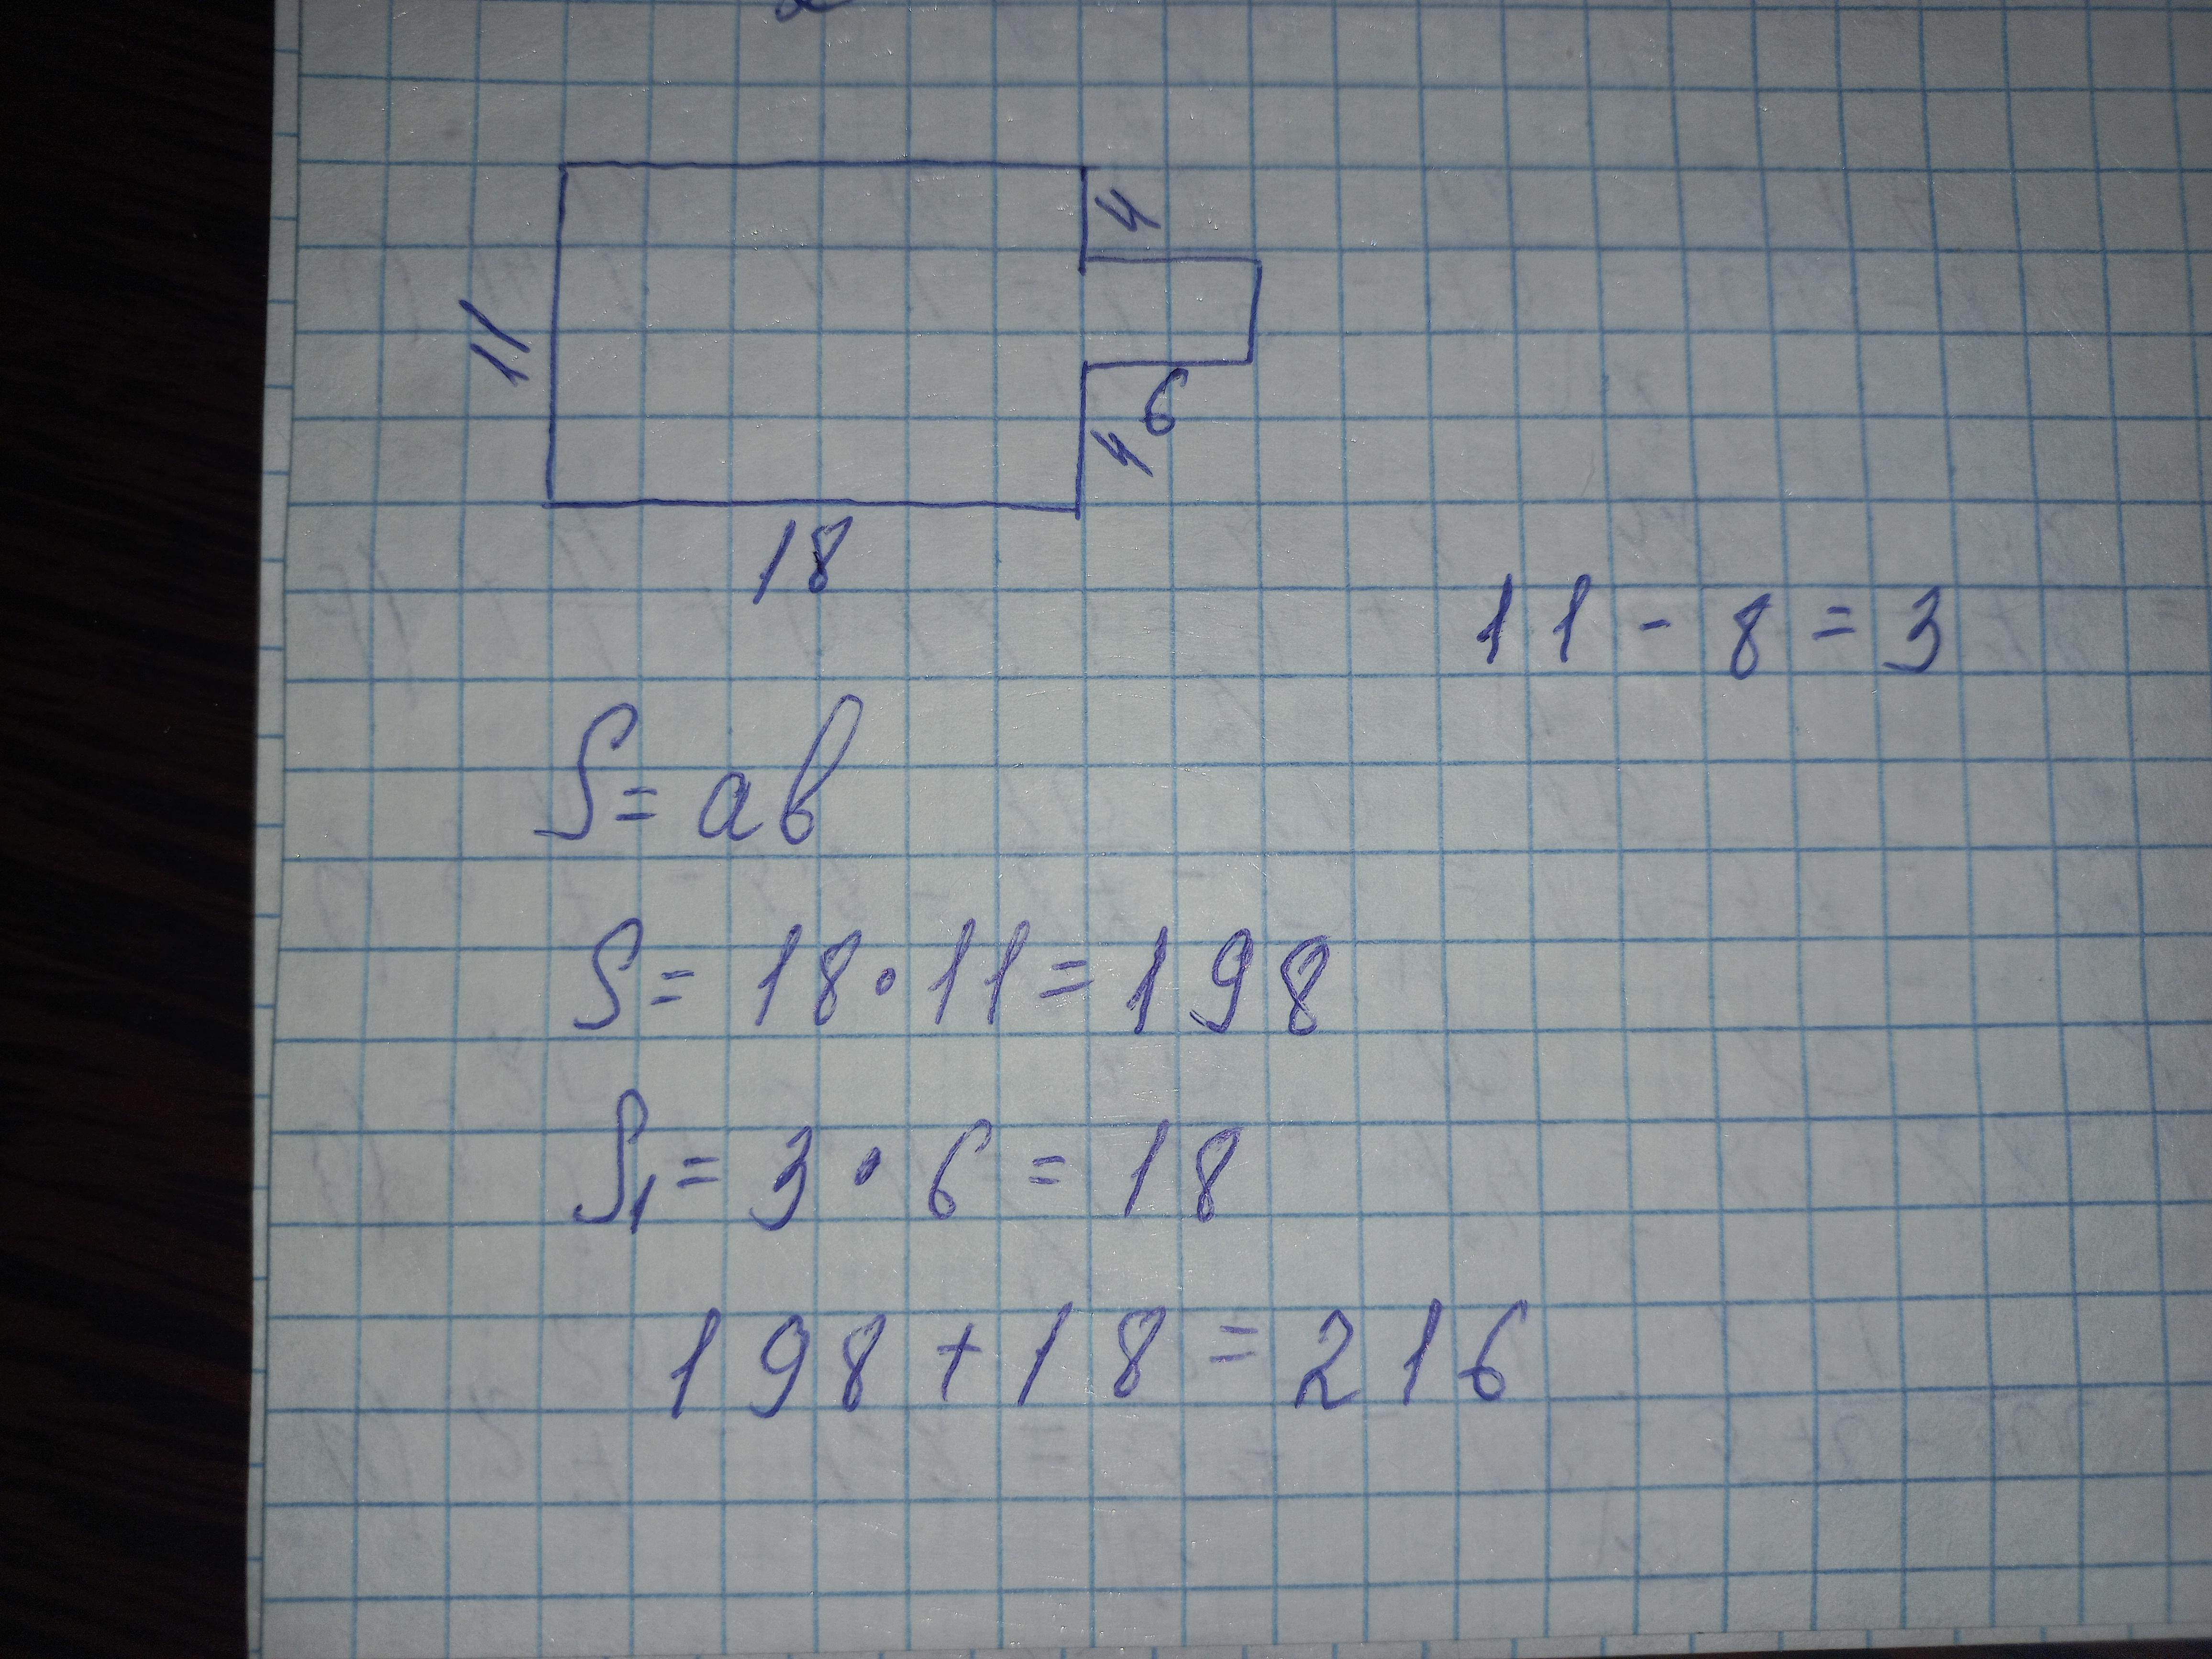 4
11
6
4
18
11 - 8 = 3
S = ab
S = 18 • 11 = 198
S₁ = 3 • 6 = 18
198 + 18 = 216